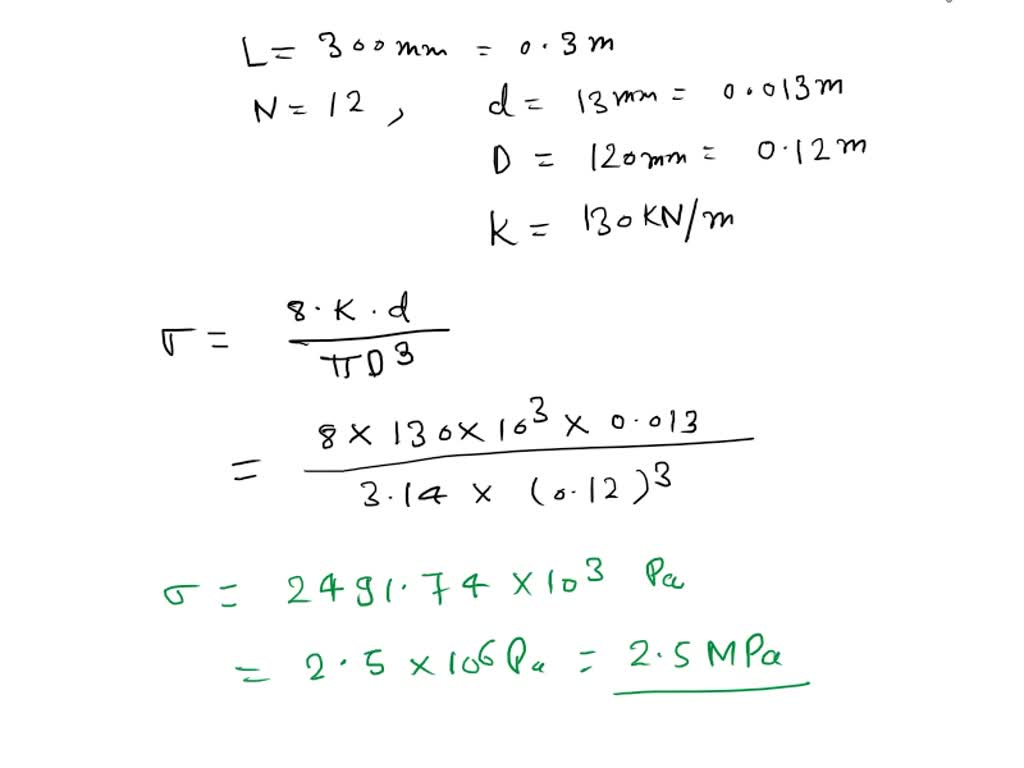 L = 300 mm = 0.3 m
N = 12 , d = 13 mm = 0.013 m
D = 120 mm = 0.12 m
K = 130 KN/m
σ = 8 · K · d / πD³
= 8 × 130 × 10³ × 0.013 / 3.14 × (0.12)³
σ = 2491.74 × 10³ Pa
= 2.5 × 10⁶ Pa = 2.5 MPa